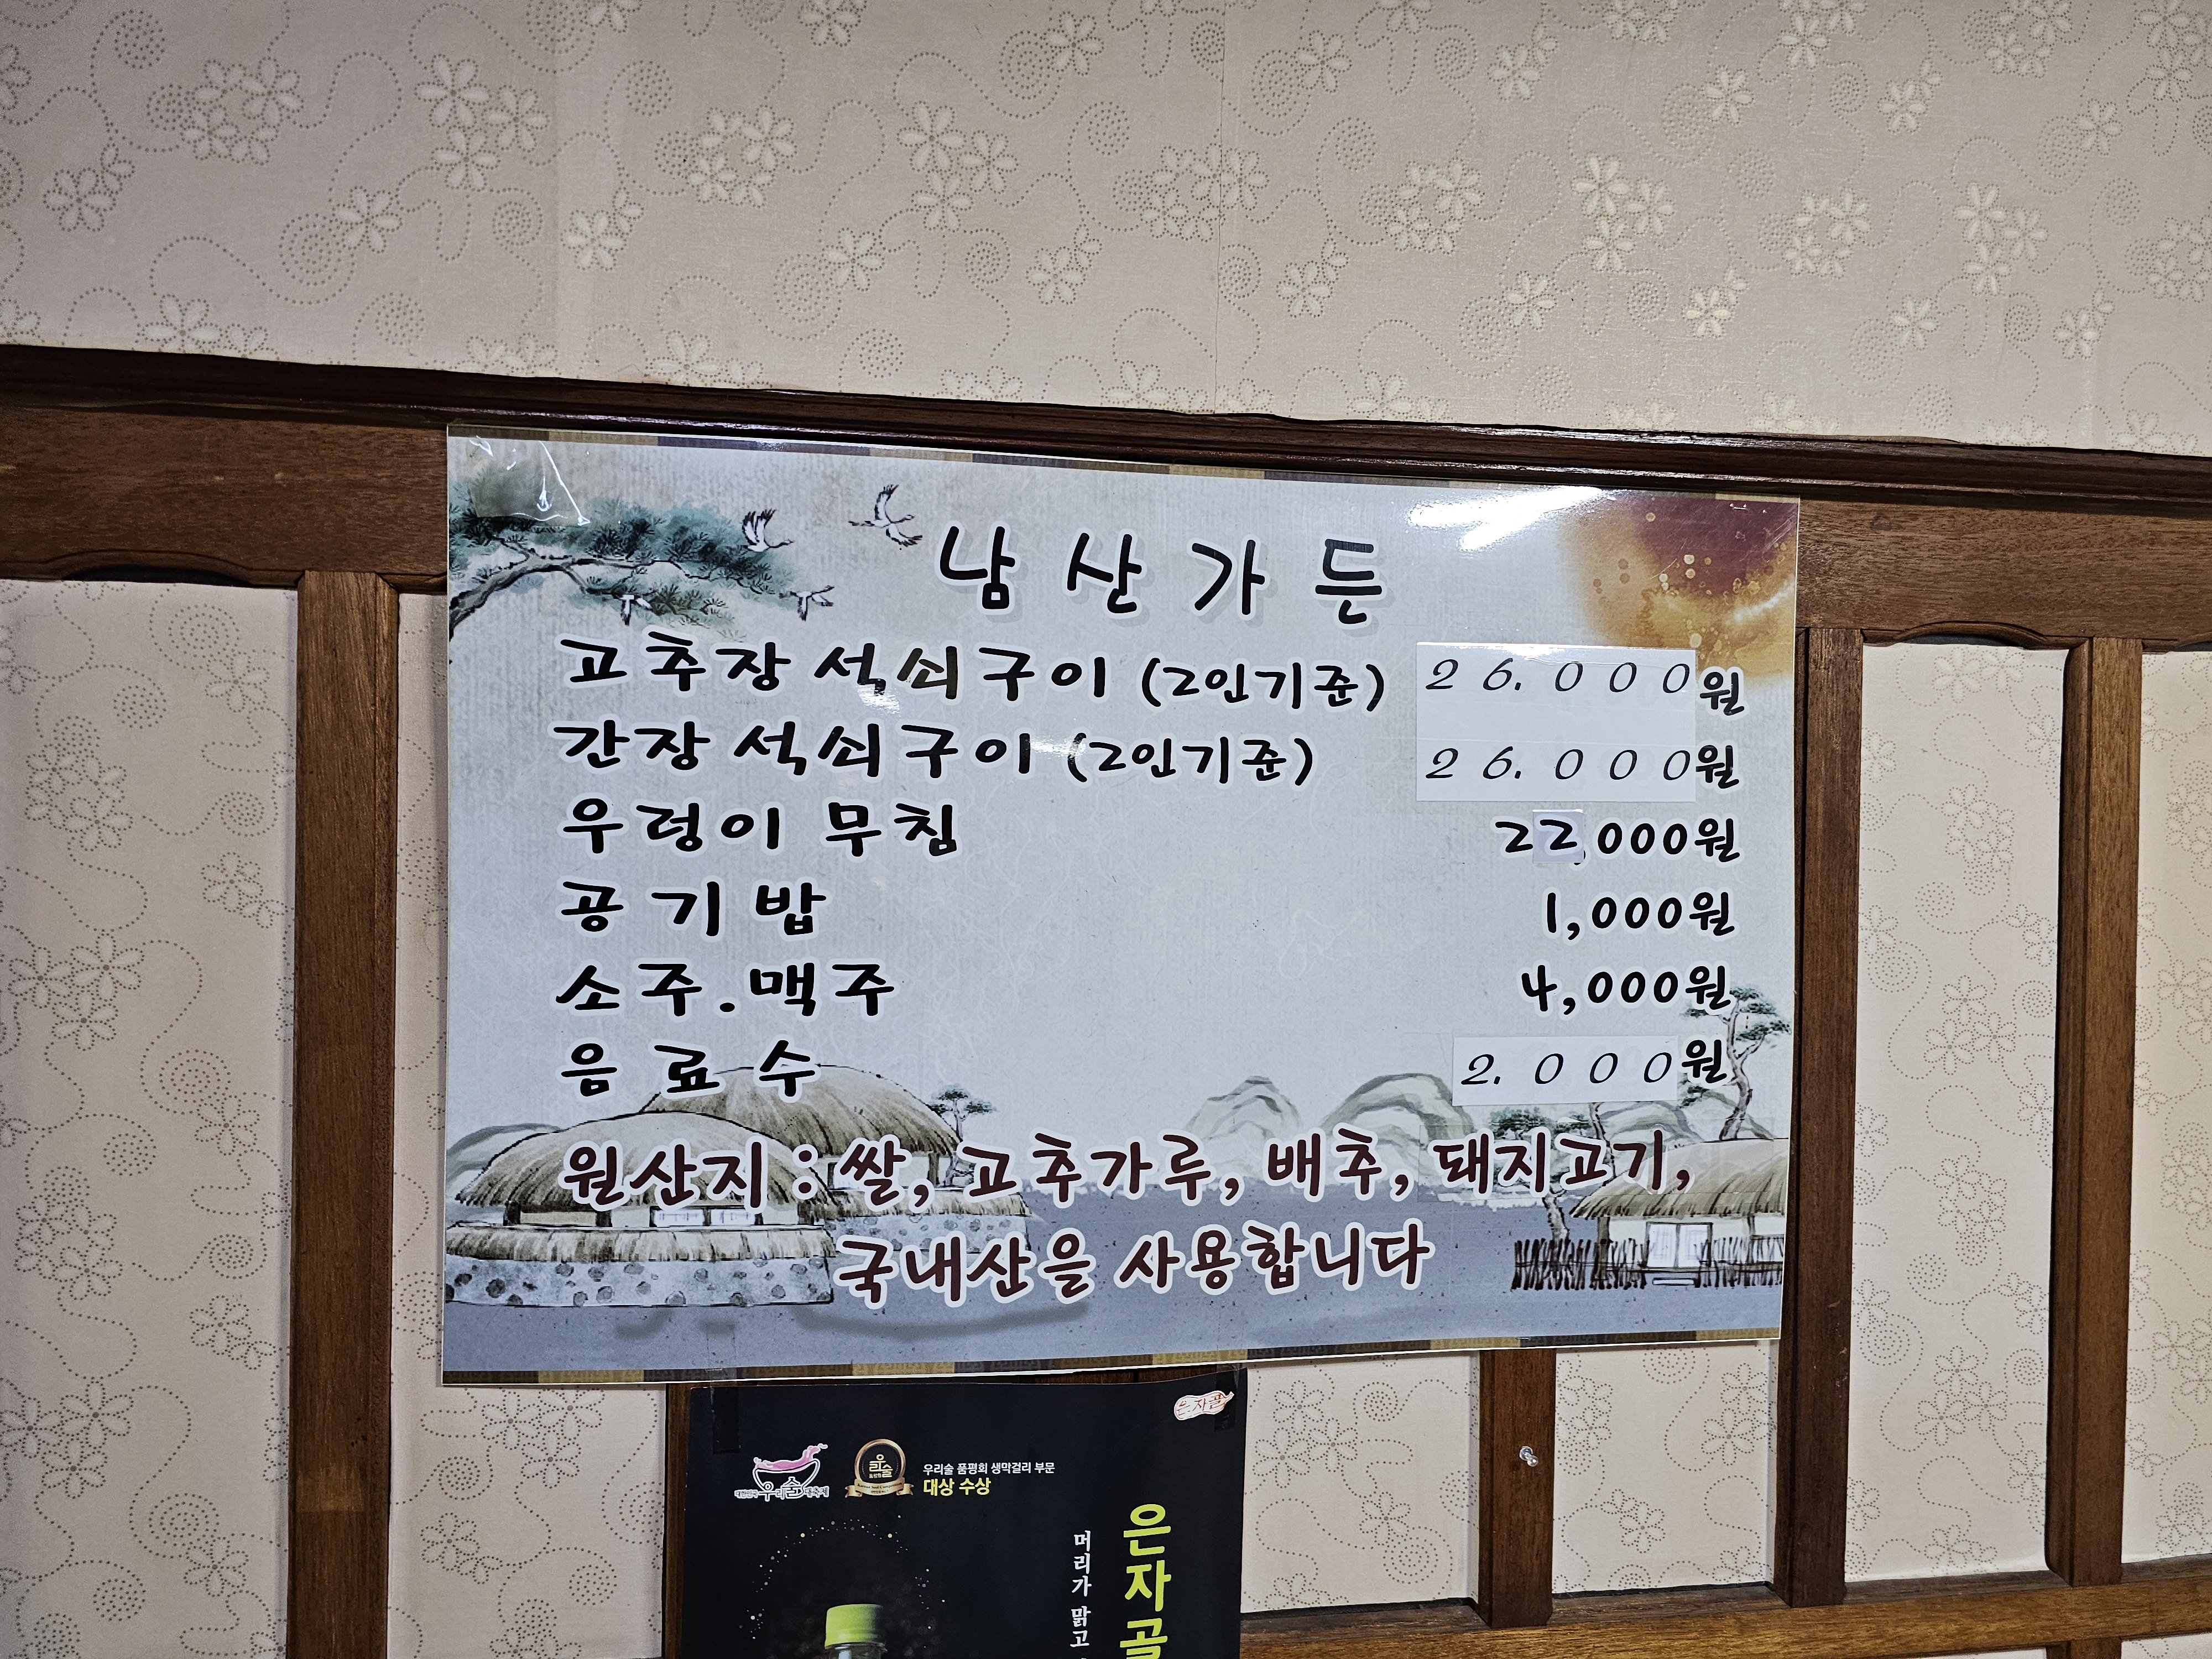 남산가든
고추장 석쇠구이 (2인기준) 26.000원
간장 석쇠구이 (2인기준) 26.000원
우렁이 무침 22,000원
공기밥 1,000원
소주.맥주 4,000원
음료수 2.000원
원산지 : 쌀, 고추가루, 배추, 돼지고기,
국내산을 사용합니다
은자골
우리술 품평회 생막걸리 부문
대상 수상
은자골
머리가 맑고